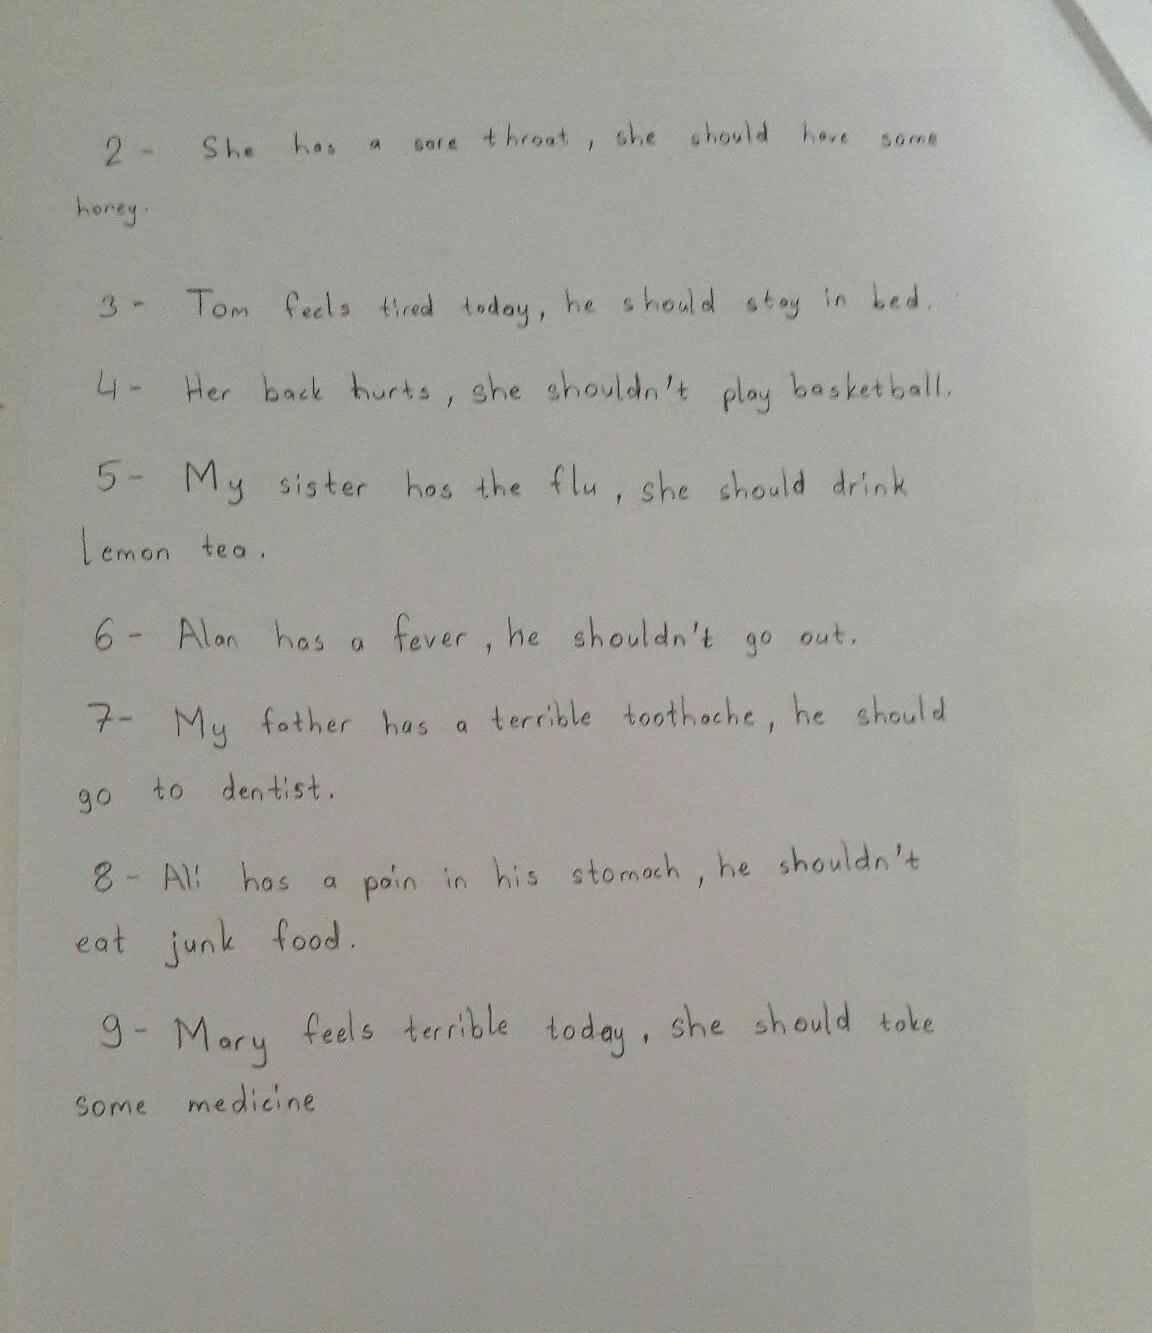 2 - She has a sore throat, she should have some
honey.
3 - Tom feels tired today, he should stay in bed.
4 - Her back hurts, she shouldn't play basketball.
5 - My sister has the flu, she should drink
lemon tea.
6 - Alan has a fever, he shouldn't go out.
7 - My father has a terrible toothache, he should
go to dentist.
8 - Ali has a pain in his stomach, he shouldn't
eat junk food.
9 - Mary feels terrible today, she should take
some medicine